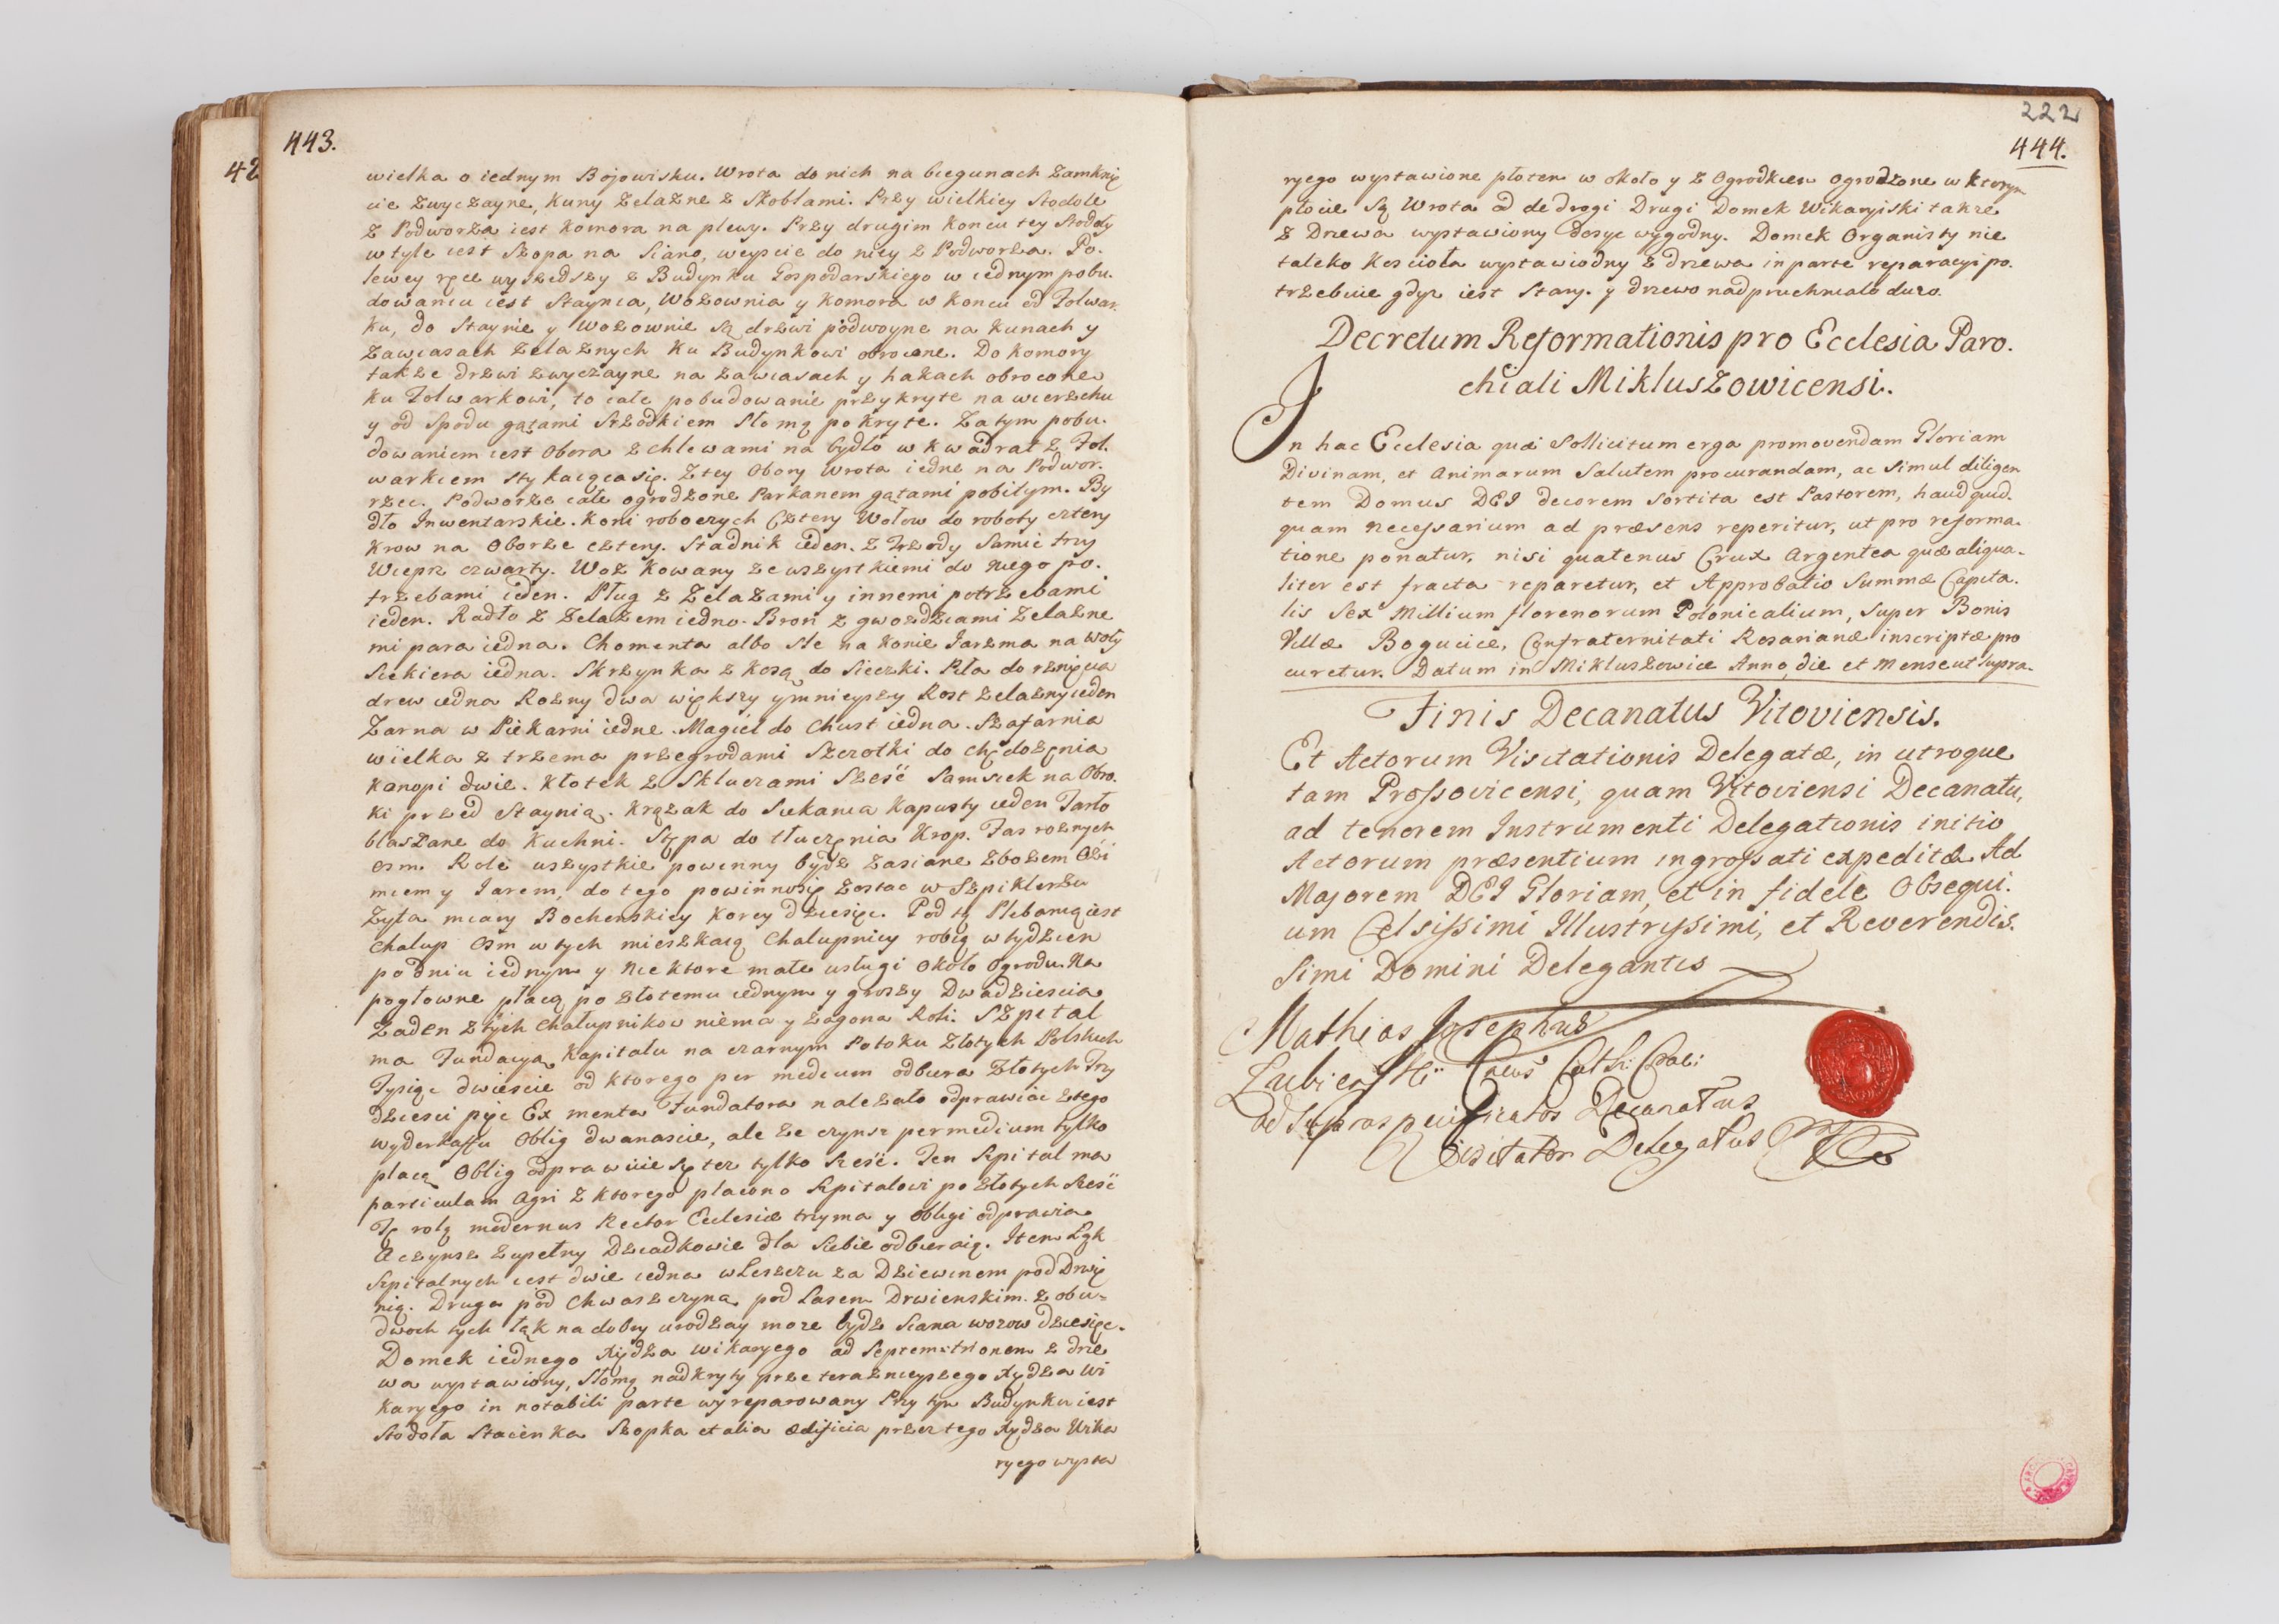 443.
42
wielka o iednym Bojowisku. Wrota do nich na biegunach Zamknię
cie Zwyczayne, Kuny Zelazne z Skoblami. Przy wielkiey Stodole
z Podworza iest Komora na plewy. Przy drugim Koncu tey Stodoły
w tyle iest Szopa na Siano, weyscie do niey z Podworza. Po
lewey ręce wyszedszy z Budynku Gospodarskiego w iednym pobu.
dowaniu iest Staynia, Wozownia y Komora w Koncu od Folwar.
ku, do Staynie y Wozownie są drzwi podwoyne na Kunach y
Zawiasach Zelaznych Ku Budynkowi obrocone. Do Komory
także drzwi zwyczayne na zawiasach y hakach obrocone
ku Folwarkowi, to całe pobudowanie przykryte na wierzchu
y od Spodu gątami Srzodkiem Słomą pokryte. Za tym pobu.
dowaniem iest Obora z chlewami na bydło w kwadrat z Fol.
warkiem stykaiącasię. Z tey Obory Wrota iedne na Podwor.
rzec. Podworze całe ogrodzone Parkanem gątami pobitym. By
dło Inwentarskie. Koni roboczych Cztery Wołow do roboty cztery
Krow na Oborze cztery. Stadnik ieden. z Trzody Samic trzy
Wieprz czwarty. Woz Kowany ze wszystkiemi do niego po.
trzebami ieden. Pług z Zelazami y innemi potrzebami
ieden. Radło z Zelazem iedno. Bron z gwozdziami Zelazne
mi para iedna. Chomenta albo Sle na Konie Jarzma na woły
Siekiera iedna. Skrzynka z Kosą do Sieczki. Piła do rznięcia
drew iedna Rozny dwa większy y mnieyszy Rost zelazny ieden
Zarna w Piekarni iedne. Magiel do Chust iedna. Szafarnia
wielka z trzema przegrodami Szczotki do chędozęnia
Kanopi dwie. Kłotek z Kluczami Sześć Samsiek na Obro.
ki przed Staynią. Krązak do Siekania Kapusty ieden Tarło
blaszane do Kuchni. Stępa do tłuczęnia Krop. Fas roznych
osm. Role wszystkie powinny bydz zasiane zbozem Ozi
miem y Jarem, do tego powinno się zostac w Szpiklerzu
Zyta miary Bochenskiey Korcy dziesięc. Pod tą Plebanią iest
Chalup Osm w tych mieszkaią Chalupnicy robią w tydzien
po dniu iednym y niektore małe usługi około Ogrodu. Na
pogłowne płacą po złotemu iednym y groszy Dwadziescia
Zaden z tych Chałupnikow niema y zagona Roli. Szpital
ma Fundacyą Kapitału na czarnym Potoku Złotych Polskich
Tysiąc dwiescie od ktorego per medium odbiera Złotych Trzy
dziesci pięc Ex menta Fundatora nalezało odprawiac z tego
wyderkaffu Oblig dwanascie, ale ze czynsz per medium tylko
płacą Oblig odprawuie się tez tylko szesć. Ten Szpital ma
particulam Agri z ktorego płacono Szpitalowi po Złotych szesć
Tę rolą modernus Rector Ecclesiæ trzyma y obligi odprawia
A czynsz zupełny Dziadkowie dla siebie odbieraią. Item Łąk
Szpitalnych iest dwie iedna w Leszczu za Dziewinem pod Drwi
nią. Druga pod Chwaszczyną pod Lasem Drwienskim. z obu=
dwoch tych łąk na dobry urodzay moze bydz Siana wozow dziesięc.
Domek iednego Xiędza Wikaryego ad Septemtrionem z drze
wa wystawiony, Słomą nadkryty prze teraznieyszego Xiędza Wi
karyego in notabili parte wyreparowany Przy tym Budynku iest
Stodoła Stacienka Szopka et alia ædificia przez tego Xiędza Wika
ryego wysta
222
444.
ryego wystawione płotem w około y z Ogrodkiem ogrodzone w ktorym
płocie są Wrota od drogi Drugi Domek Wikaryiski takze
z Drzewa wystawiony dosyc wygodny. Domek Organisty nie
taleko Kościoła wystawiodny z drzewa in parte reparacyi po.
trzebuie gdyz iest Stary y drzewo nadpruchniało duzo.
Decretum Reformationis pro Ecclesia Paro.
chiali Mikluszowicensi.
In hac Ecclesia quæ Sollicitum erga promovendam Gloriam
Divinam, et Animarum Salutem procurandam, ac simul diligen
tem Domus DEI decorem sortita est Pastorem, haud quid.
quam necessarium ad præsens reperitur, ut pro reforma.
tione ponatur, nisi quatenus Crux Argentea quæ aliqua.
liter est fracta reparetur, et Approbatio Summæ Capita.
lis Sex Millium florenorum Polonicalium, super Bonis
Villæ Bogucice, Confraternitati Rosarianæ inscriptæ pro
curetur. Datum in Mikluszowice Anno, die et Mense ut supra.
Finis Decanatus Vitoviensis.
Et Actorum Visitationis Delegatæ, in utroque
tam Proszovicensi, quam Vitoviensi Decanatu,
ad tenorem Instrumenti Delegationis initio
Actorum præsentium ingrossati expeditæ. Ad
Majorem DEI Gloriam, et in fidele Obsequi.
um Celsissimi Illustrissimi, et Reverendis.
simi Domini Delegantis
Mathias Josephus
Łubienski Cncus Cath: Crac:
ad supraspecificatos Decanatus
Visitator Delegatus